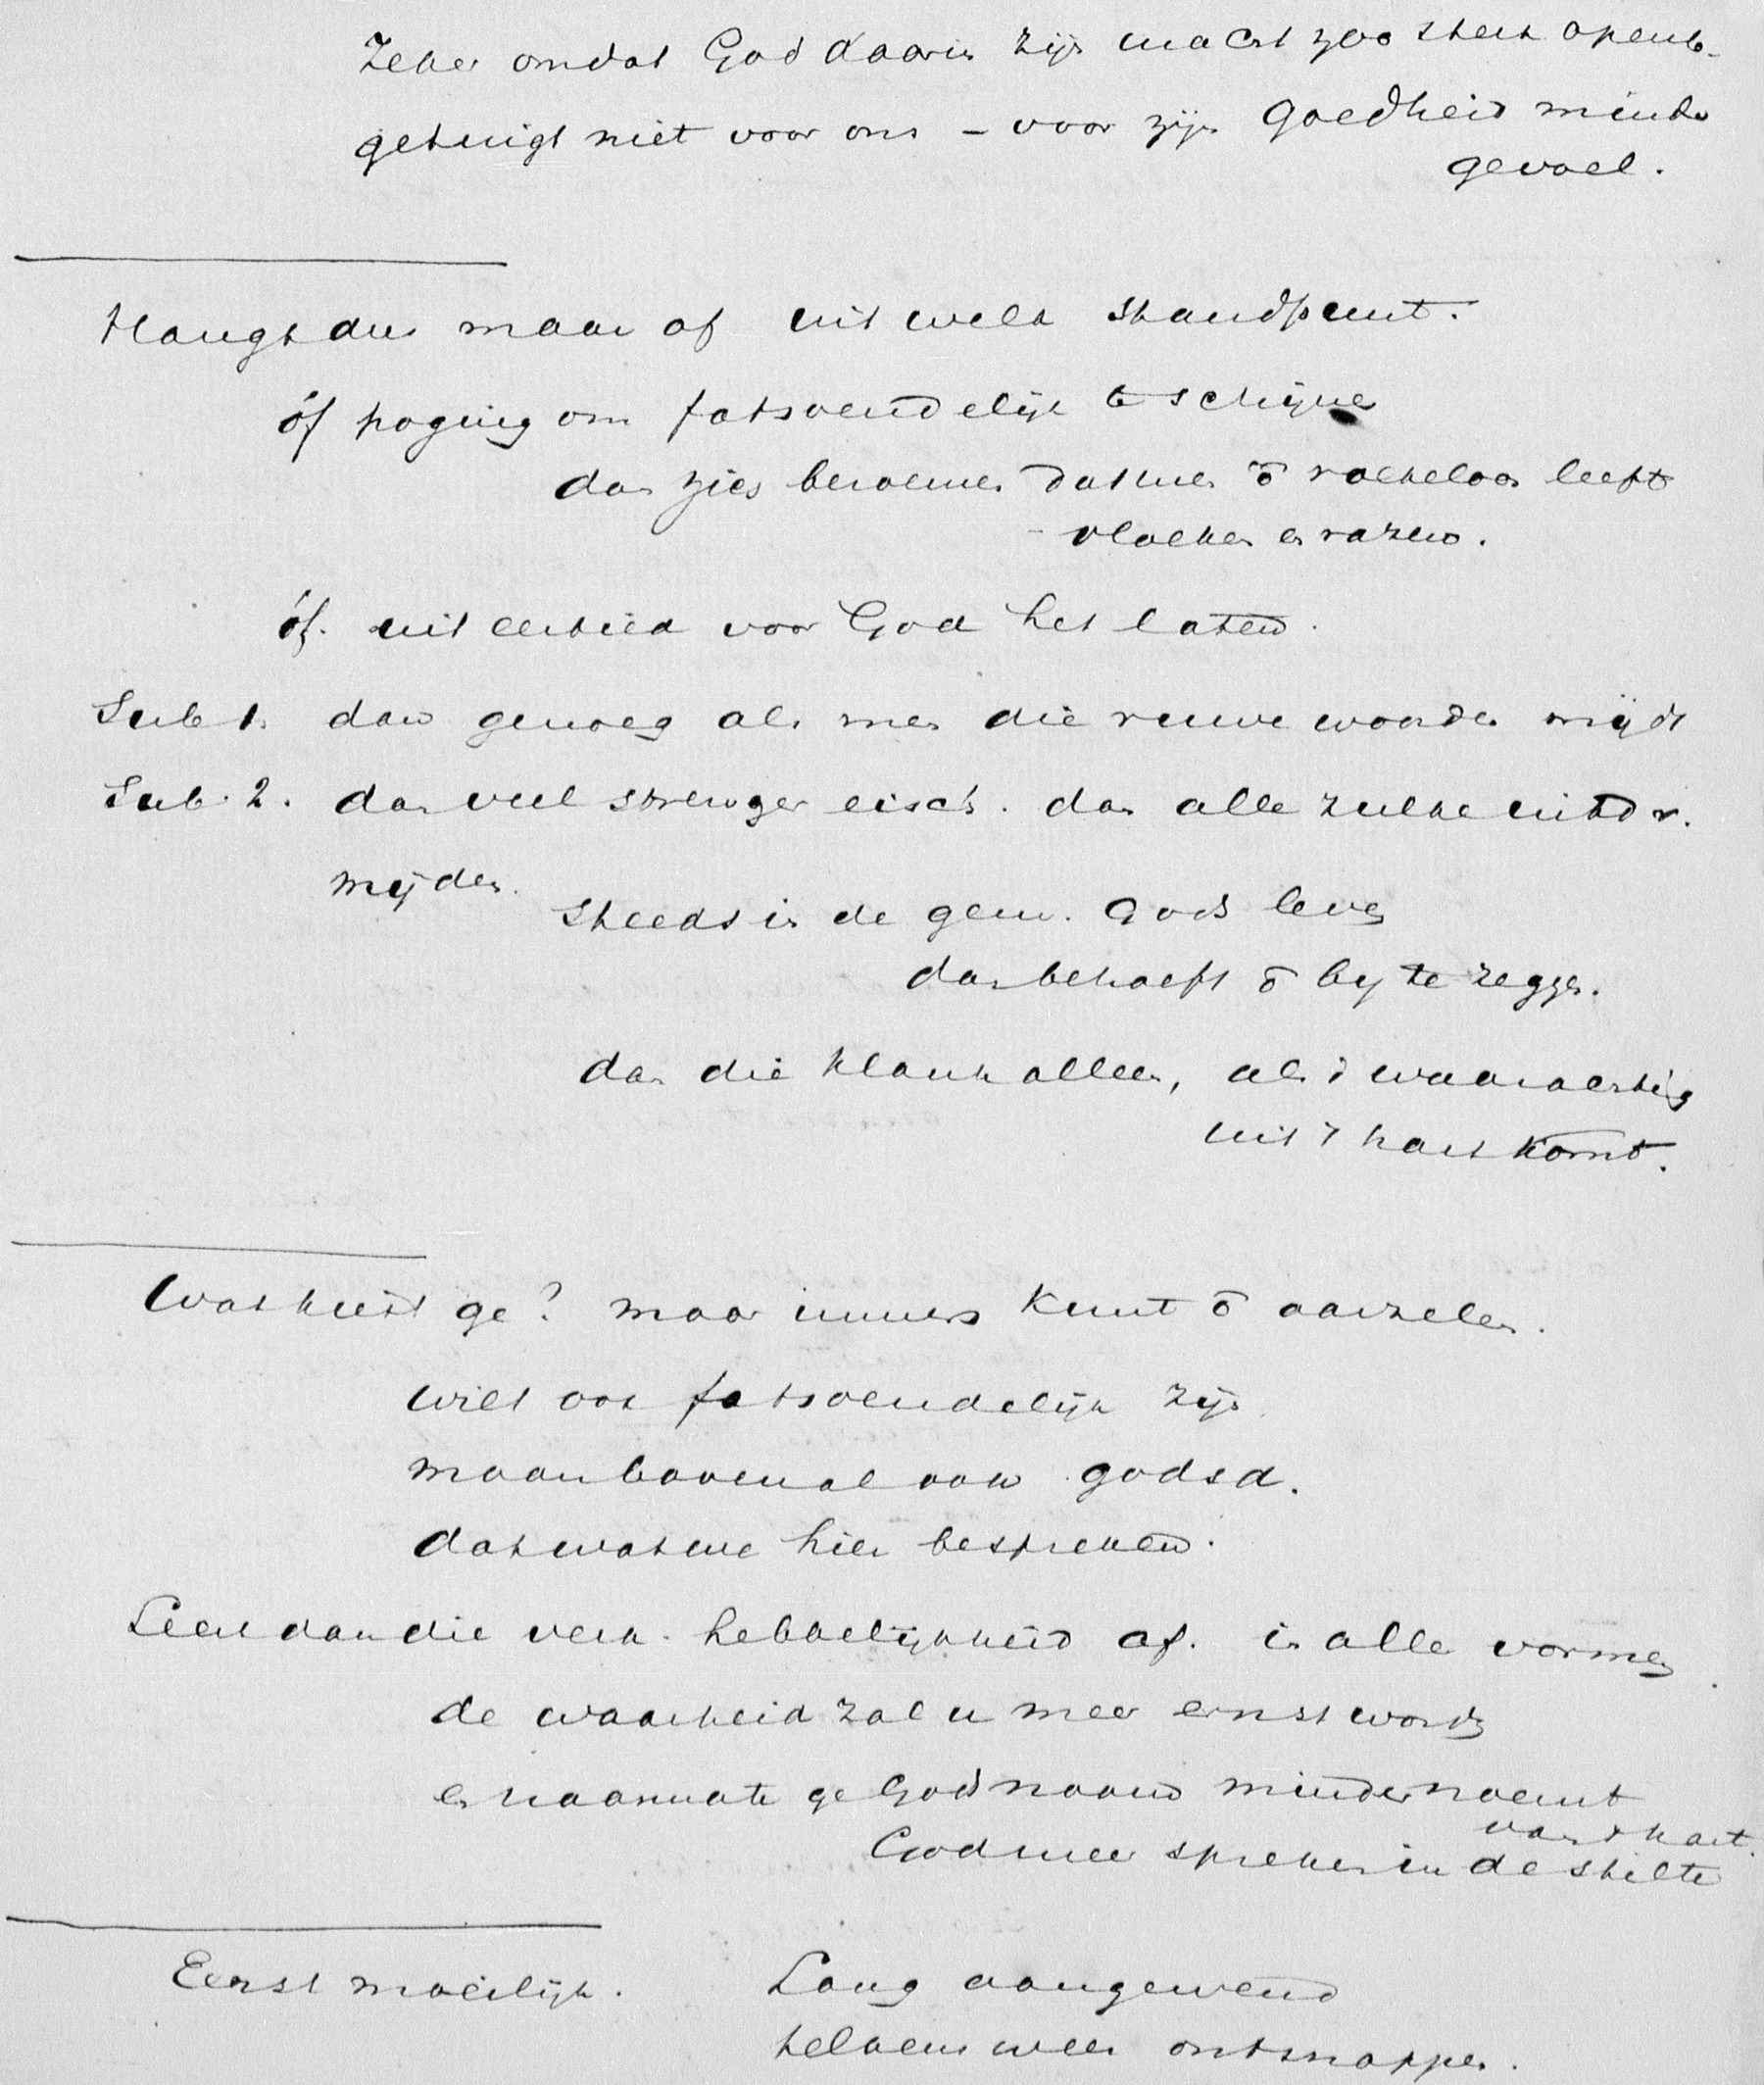 Zeker omdat God daarin zijn macht zoo sterk openb.
getuigt niet voor ons – voor zijn goedheid minder
gevoel.
Hangt dus maar af uit welk standpunt.
óf poging om fatsoendelijk te schijnen
dan zich beroemen dat men ō roekeloos leeft
vloeken en razen.
óf. uit eerbied voor God het laten.
Sub 1. dan genoeg als men die ruwe woorden mijdt
Sub. 2. dan veel strenger eisch. dan alle zulke uitdr.
mijden.
Steeds in de gem. Gods leven
dan behoeft ō bij te zeggen.
dan die klank alleen, als 't waarachtig
uit 't hart komt.
Wat kiest ge? maar immers kunt ō aarzelen.
wilt ook fatsoendelijk zijn
maar bovenal ook godsd.
dat wat we hier bespreken.
Leert dan die verk. hebbelijkheid af. in alle vormen
de waarheid zal u meer ernst worden
en naarmate ge Gods naam minder noemt
God meer spreken in de stilte
van 't hart.
Eerst moeilijk. Lang aangewend
telkens weer ontsnappen.